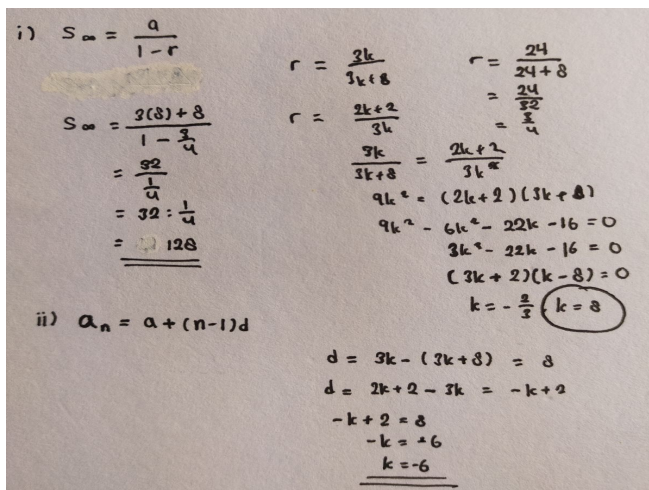 i) S∞ = a / 1 - r
S∞ = 3(8) + 8 / 1 - 3/4
= 32 / 1/4
= 32 : 1/4
= 128
r = 3k / 3k+8
r = 2k+2 / 3k
3k / 3k+8 = 2k+2 / 3k
9k² = (2k+2)(3k+8)
9k² - 6k² - 22k - 16 = 0
3k² - 22k - 16 = 0
(3k + 2)(k - 8) = 0
k = - 2/3, k = 8
r = 24 / 24 + 8
= 24 / 32
= 3/4
ii) an = a + (n-1)d
d = 3k - (3k+8) = 8
d = 2k+2 - 3k = -k+2
-k + 2 = 8
-k = +6
k = -6